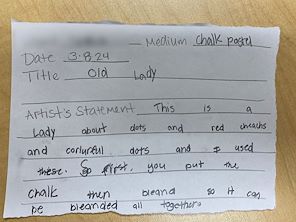 Medium Chalk pastel
Date 3.8.24
Title Old Lady
Artist's Statement This is a
Lady about dots and red cheachs
and corlurful dots and I used
these. So first, you put the
Chalk then bleand so it can
be bleanded all together